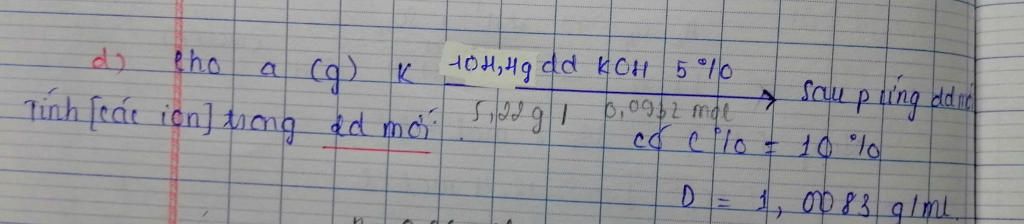 d) Cho a (g) K 104,4g dd KOH 5% → sau pứng dd mới
Tính [các ion] trong dd mới. 5,22g / 0,0932 mol
có C% = 10%
D = 1,0083 g/ml